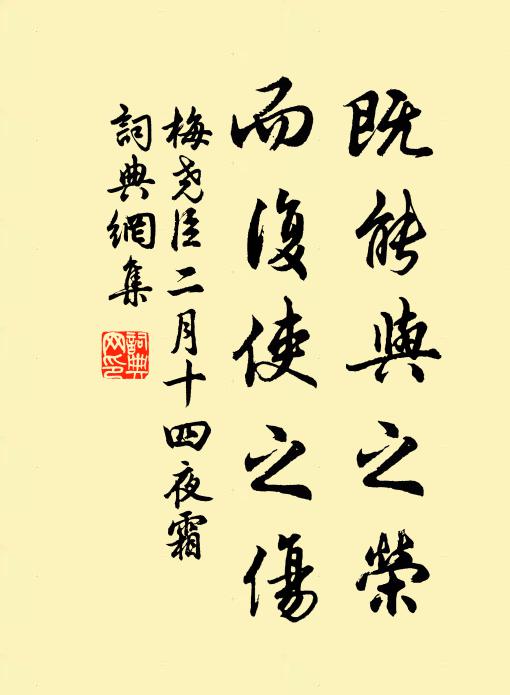 既能與之榮
而復使之傷
梅堯臣二月十四夜霜
詞典網集
詞典网印